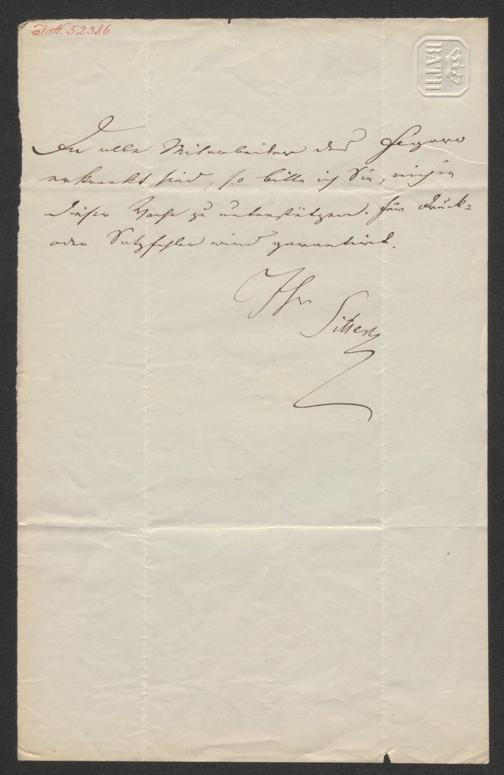 I. N. 52386
BATH
Da alle Mitarbeiter des Figaro
erkrankt sind, so bitte ich Sie, mich in
dieser Woche zu unterstützen. Für Druck=
oder Satzfehler wird garantirt.
Ihr
Sitter